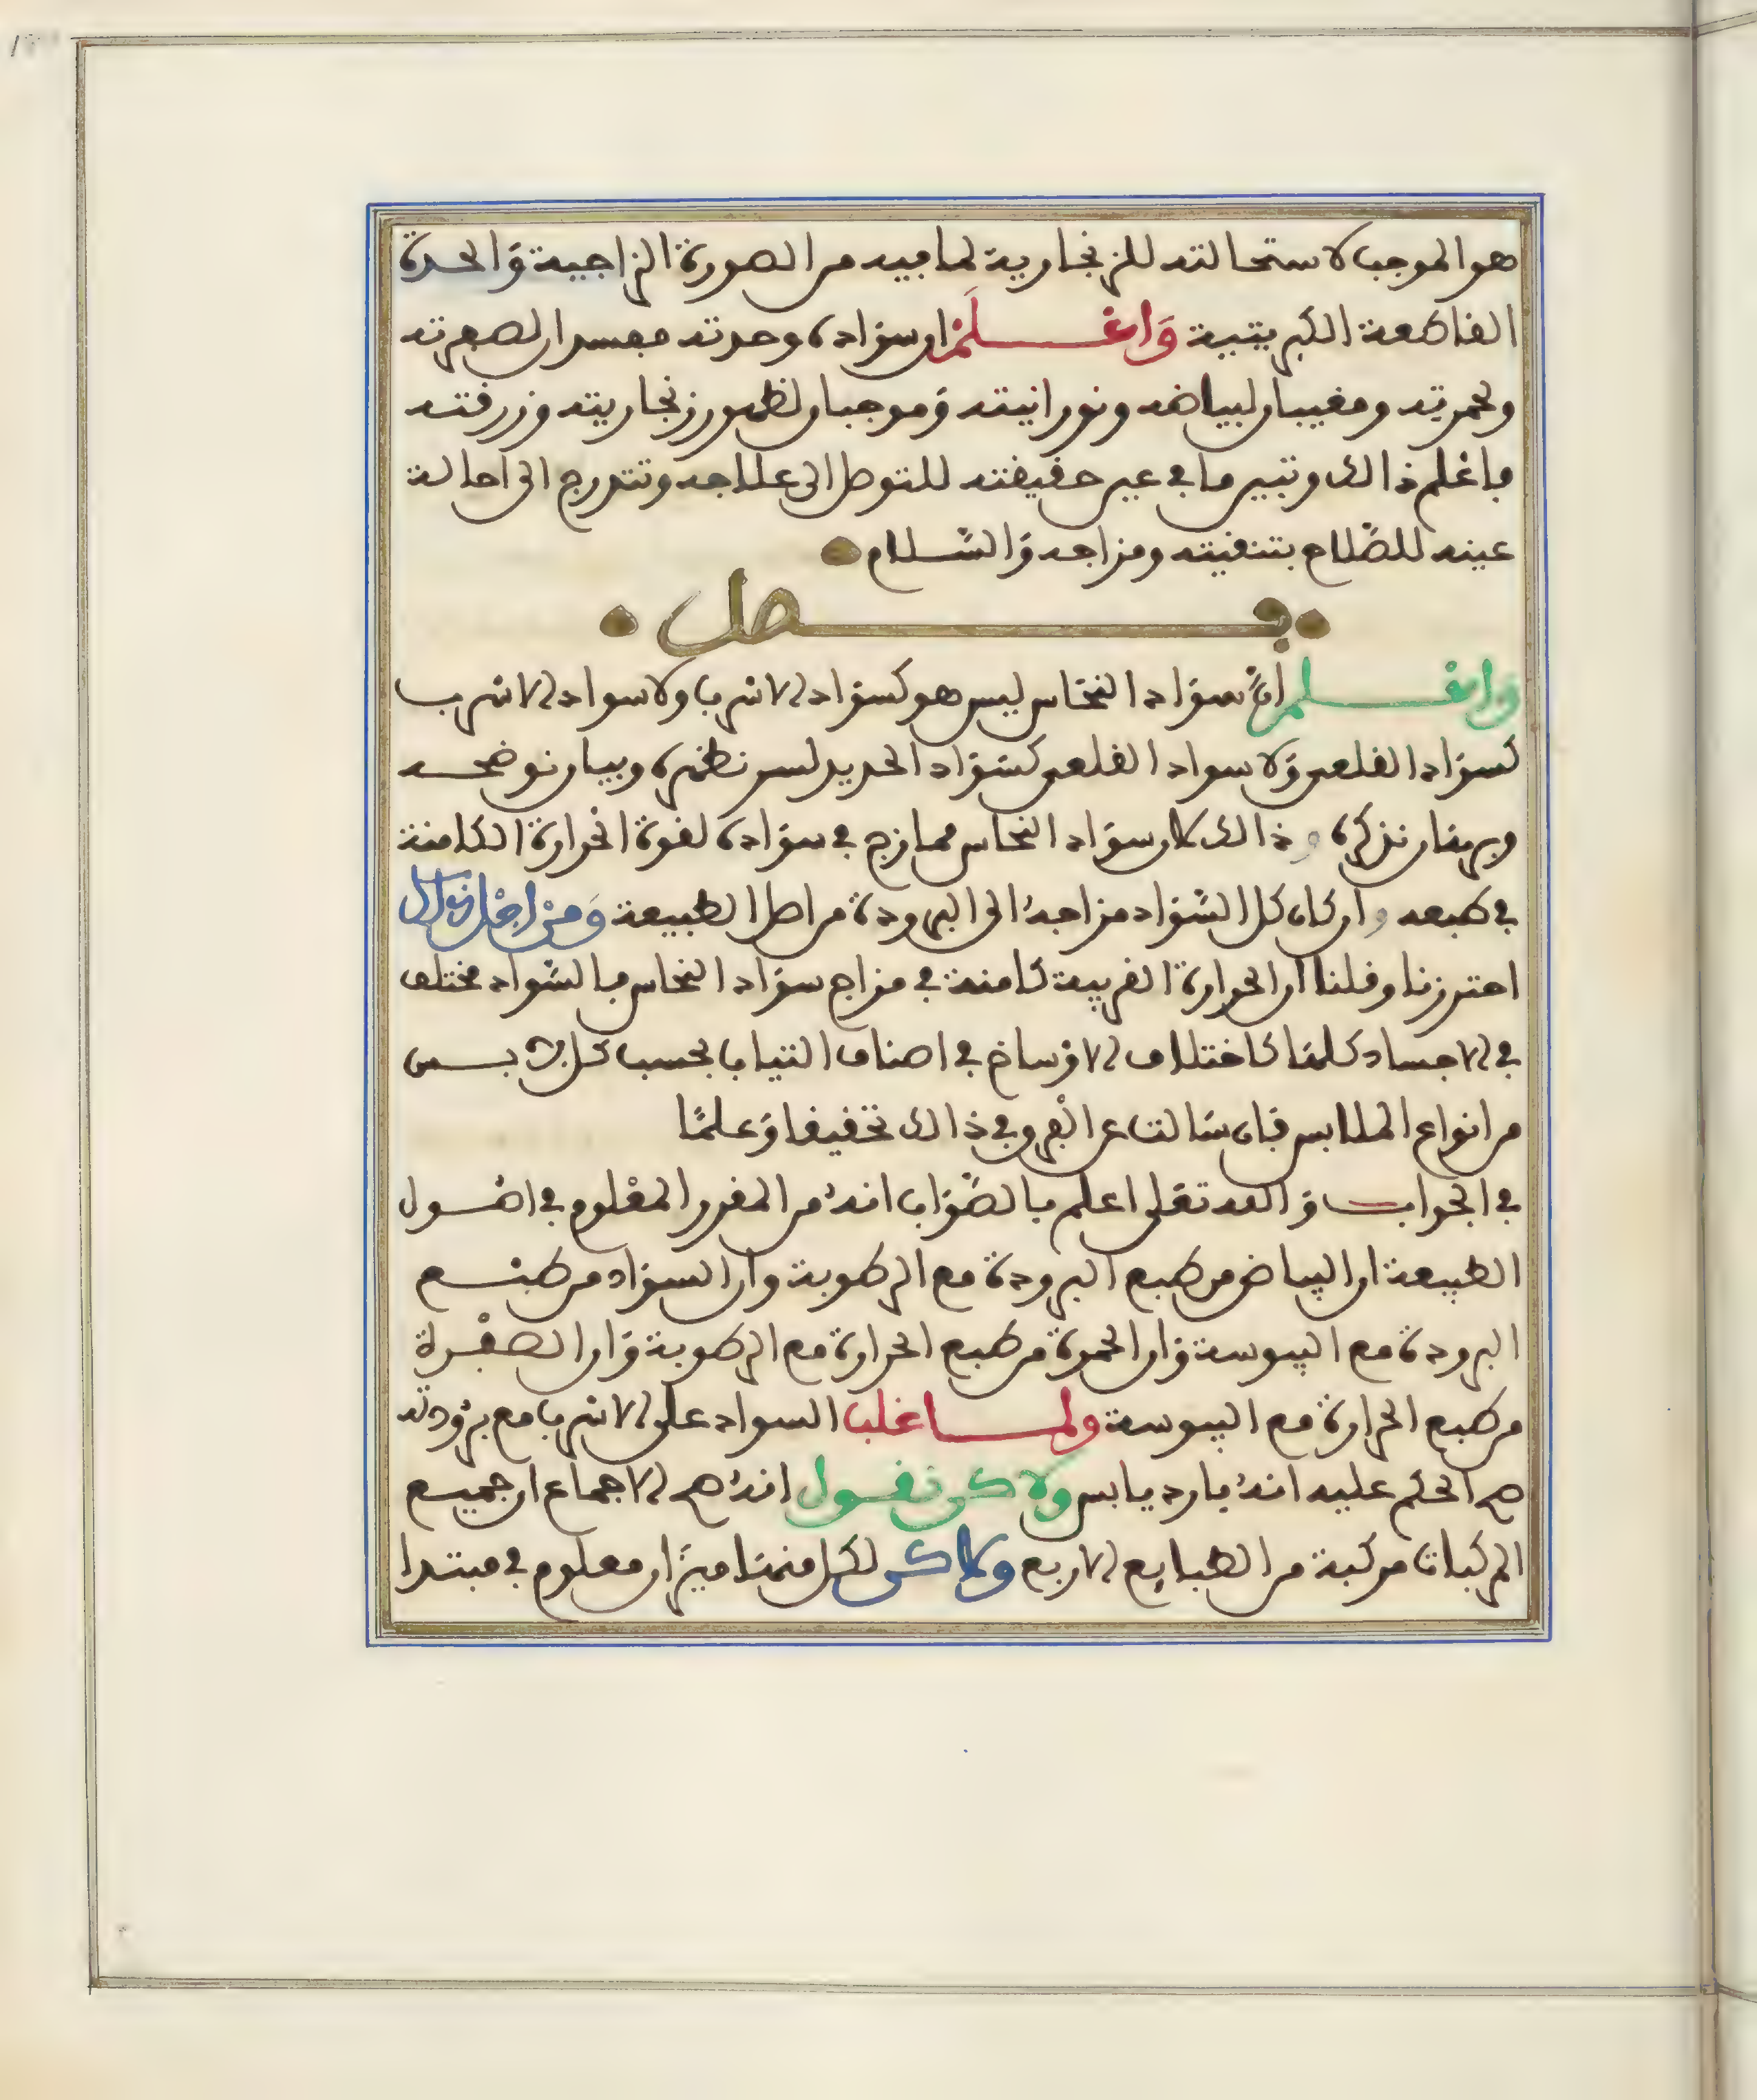 هو الموجب لاستحالته للزنجارية لما فيه من الصورة الزاجية وَالحدة
القاطعة الكبريتية وَاعْلَمْ ان سوَاده وحدته مفسدان لصفرته
وحمرته ومغيبان لبياضه ونورانيته وَموجبان لظهور زنجاريته وزرقته
فاعْلم ذالك وتبين ما في عين حقيقته للتوصل الى علاجه وتتدرج الى احالة
عينه للصَّلاح بتنقيته ومزاجه وَالسَّلام
فصل
وَاعْلم انَّ سوَاد النحَاس ليس هو كسوَاد الاسرب ولا سواد الاسرب
كسوَاد القلعي وَلا سواد القلعي كسَوَاد الحديد لسر نظهره وبيان نوضحه
وبرهان نذكره وذالك لان سوَاد النحاس ممازج في سوَاده لقوة الحرارة الكامنة
في طبعه وان كان كل السَّوَاد مزاجهُ الى البرودة من اصل الطبيعة وَمنْ اجْل ذالك
احترزنا وقلنا ان الحرارة الغريبة كامنة في مزاج سوَاد النحاس فالسَّواد مختلف
في الاجساد كلهَا كاختلاف الاوْساخ في اصناف الثياب بحسب كل لابس
من انواع الملابس فان سَالت عن الْفروق في ذالك تحقيقا وَعلمًا
في الجواب وَالله تعَلى اعلم بالصَّوَاب انهُ من المقرر المعْلوم في اصُول
الطبيعة ان البياض من طبع البرودة مع الرطوبة وان السوَاد من طبْع
البرودة مع اليبوسة وَان الحمرة من طبع الحرارة مع الرطوبة وَان الصفْرة
من طبع الحرارة مع اليبوسة ولما غلب السواد على الاسرب مع برُودته
صح الحكم عليه انهُ بارد يابس ولاكن نقول انهُ صح الاجماع ان جميع
المركبات مركبة من الطبايع الاربع ولاكن لكل منهَا ميزَان معلوم في مبتدا